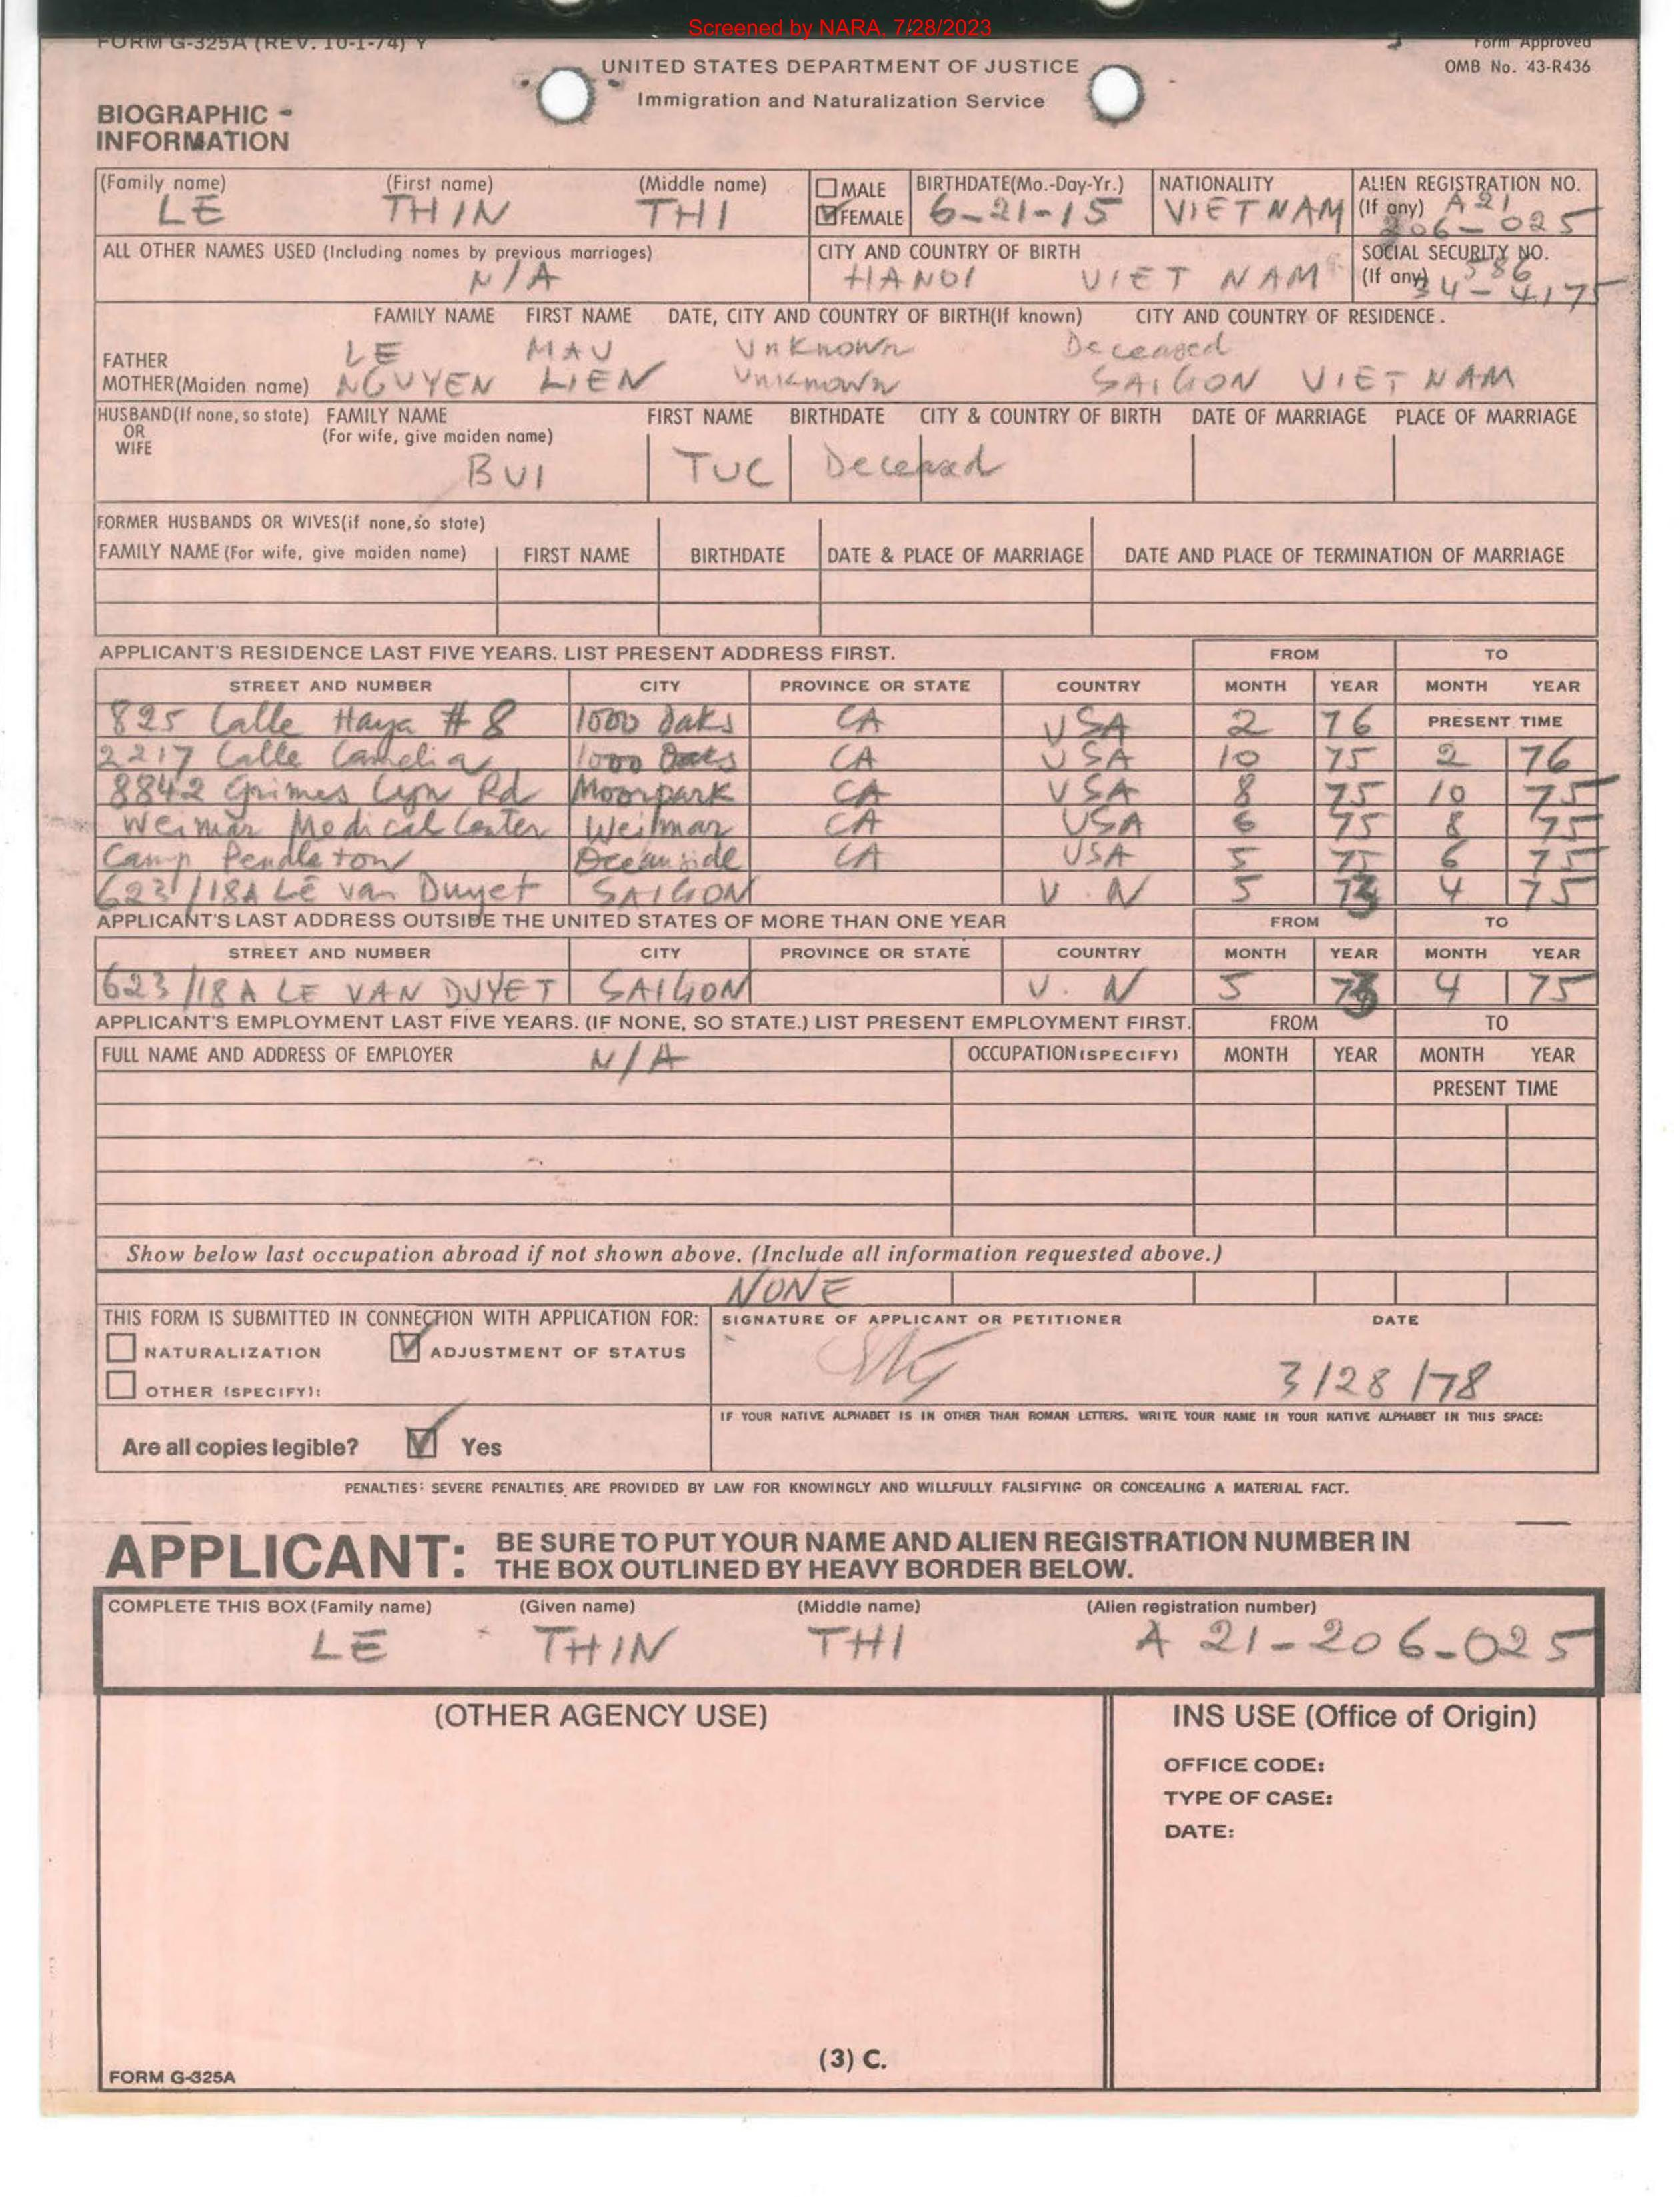 Screened by NARA, 7/28/2023
FORM G-325A (REV. 10-1-74) Y
Form Approved
OMB No. 43-R436
UNITED STATES DEPARTMENT OF JUSTICE
Immigration and Naturalization Service
BIOGRAPHIC
INFORMATION
(Family name) (First name) (Middle name) MALE BIRTHDATE(Mo.-Day-Yr.) NATIONALITY ALIEN REGISTRATION NO.
LE THIN THI FEMALE 6-21-15 VIETNAM (If any) A 21
206-025
ALL OTHER NAMES USED (Including names by previous marriages) CITY AND COUNTRY OF BIRTH SOCIAL SECURITY NO.
N/A HANOI VIET NAM (If any) 586
34-4175
FAMILY NAME FIRST NAME DATE, CITY AND COUNTRY OF BIRTH(If known) CITY AND COUNTRY OF RESIDENCE.
FATHER LE MAU Unknown Deceased
MOTHER(Maiden name) NGUYEN LIEN Unknown SAIGON VIET NAM
HUSBAND(If none, so state) FAMILY NAME FIRST NAME BIRTHDATE CITY & COUNTRY OF BIRTH DATE OF MARRIAGE PLACE OF MARRIAGE
OR (For wife, give maiden name)
WIFE
BUI TUC Deceased
FORMER HUSBANDS OR WIVES(if none,so state)
FAMILY NAME (For wife, give maiden name) FIRST NAME BIRTHDATE DATE & PLACE OF MARRIAGE DATE AND PLACE OF TERMINATION OF MARRIAGE
APPLICANT'S RESIDENCE LAST FIVE YEARS. LIST PRESENT ADDRESS FIRST. FROM TO
STREET AND NUMBER CITY PROVINCE OR STATE COUNTRY MONTH YEAR MONTH YEAR
825 Calle Haya # 8 1000 Oaks CA USA 2 76 PRESENT TIME
2217 Calle Camelia 1000 Oaks CA USA 10 75 2 76
8842 Grimes Cyn Rd Moorpark CA USA 8 75 10 75
Weimar Medical Center Weimar CA USA 6 75 8 75
Camp Pendleton Oceanside CA USA 5 75 6 75
623/18A Lê Van Duyet SAIGON V.N 5 73 4 75
APPLICANT'S LAST ADDRESS OUTSIDE THE UNITED STATES OF MORE THAN ONE YEAR FROM TO
STREET AND NUMBER CITY PROVINCE OR STATE COUNTRY MONTH YEAR MONTH YEAR
623/18A LE VAN DUYET SAIGON V. N 5 73 4 75
APPLICANT'S EMPLOYMENT LAST FIVE YEARS. (IF NONE, SO STATE.) LIST PRESENT EMPLOYMENT FIRST. FROM TO
FULL NAME AND ADDRESS OF EMPLOYER N/A OCCUPATION (SPECIFY) MONTH YEAR MONTH YEAR
PRESENT TIME
Show below last occupation abroad if not shown above. (Include all information requested above.)
NONE
THIS FORM IS SUBMITTED IN CONNECTION WITH APPLICATION FOR: SIGNATURE OF APPLICANT OR PETITIONER DATE
NATURALIZATION ADJUSTMENT OF STATUS
OTHER (SPECIFY): 3/28/78
IF YOUR NATIVE ALPHABET IS IN OTHER THAN ROMAN LETTERS, WRITE YOUR NAME IN YOUR NATIVE ALPHABET IN THIS SPACE:
Are all copies legible? Yes
PENALTIES: SEVERE PENALTIES ARE PROVIDED BY LAW FOR KNOWINGLY AND WILLFULLY FALSIFYING OR CONCEALING A MATERIAL FACT.
APPLICANT: BE SURE TO PUT YOUR NAME AND ALIEN REGISTRATION NUMBER IN
THE BOX OUTLINED BY HEAVY BORDER BELOW.
COMPLETE THIS BOX (Family name) (Given name) (Middle name) (Alien registration number)
LE THIN THI A 21-206-025
(OTHER AGENCY USE) INS USE (Office of Origin)
OFFICE CODE:
TYPE OF CASE:
DATE:
(3) C.
FORM G-325A